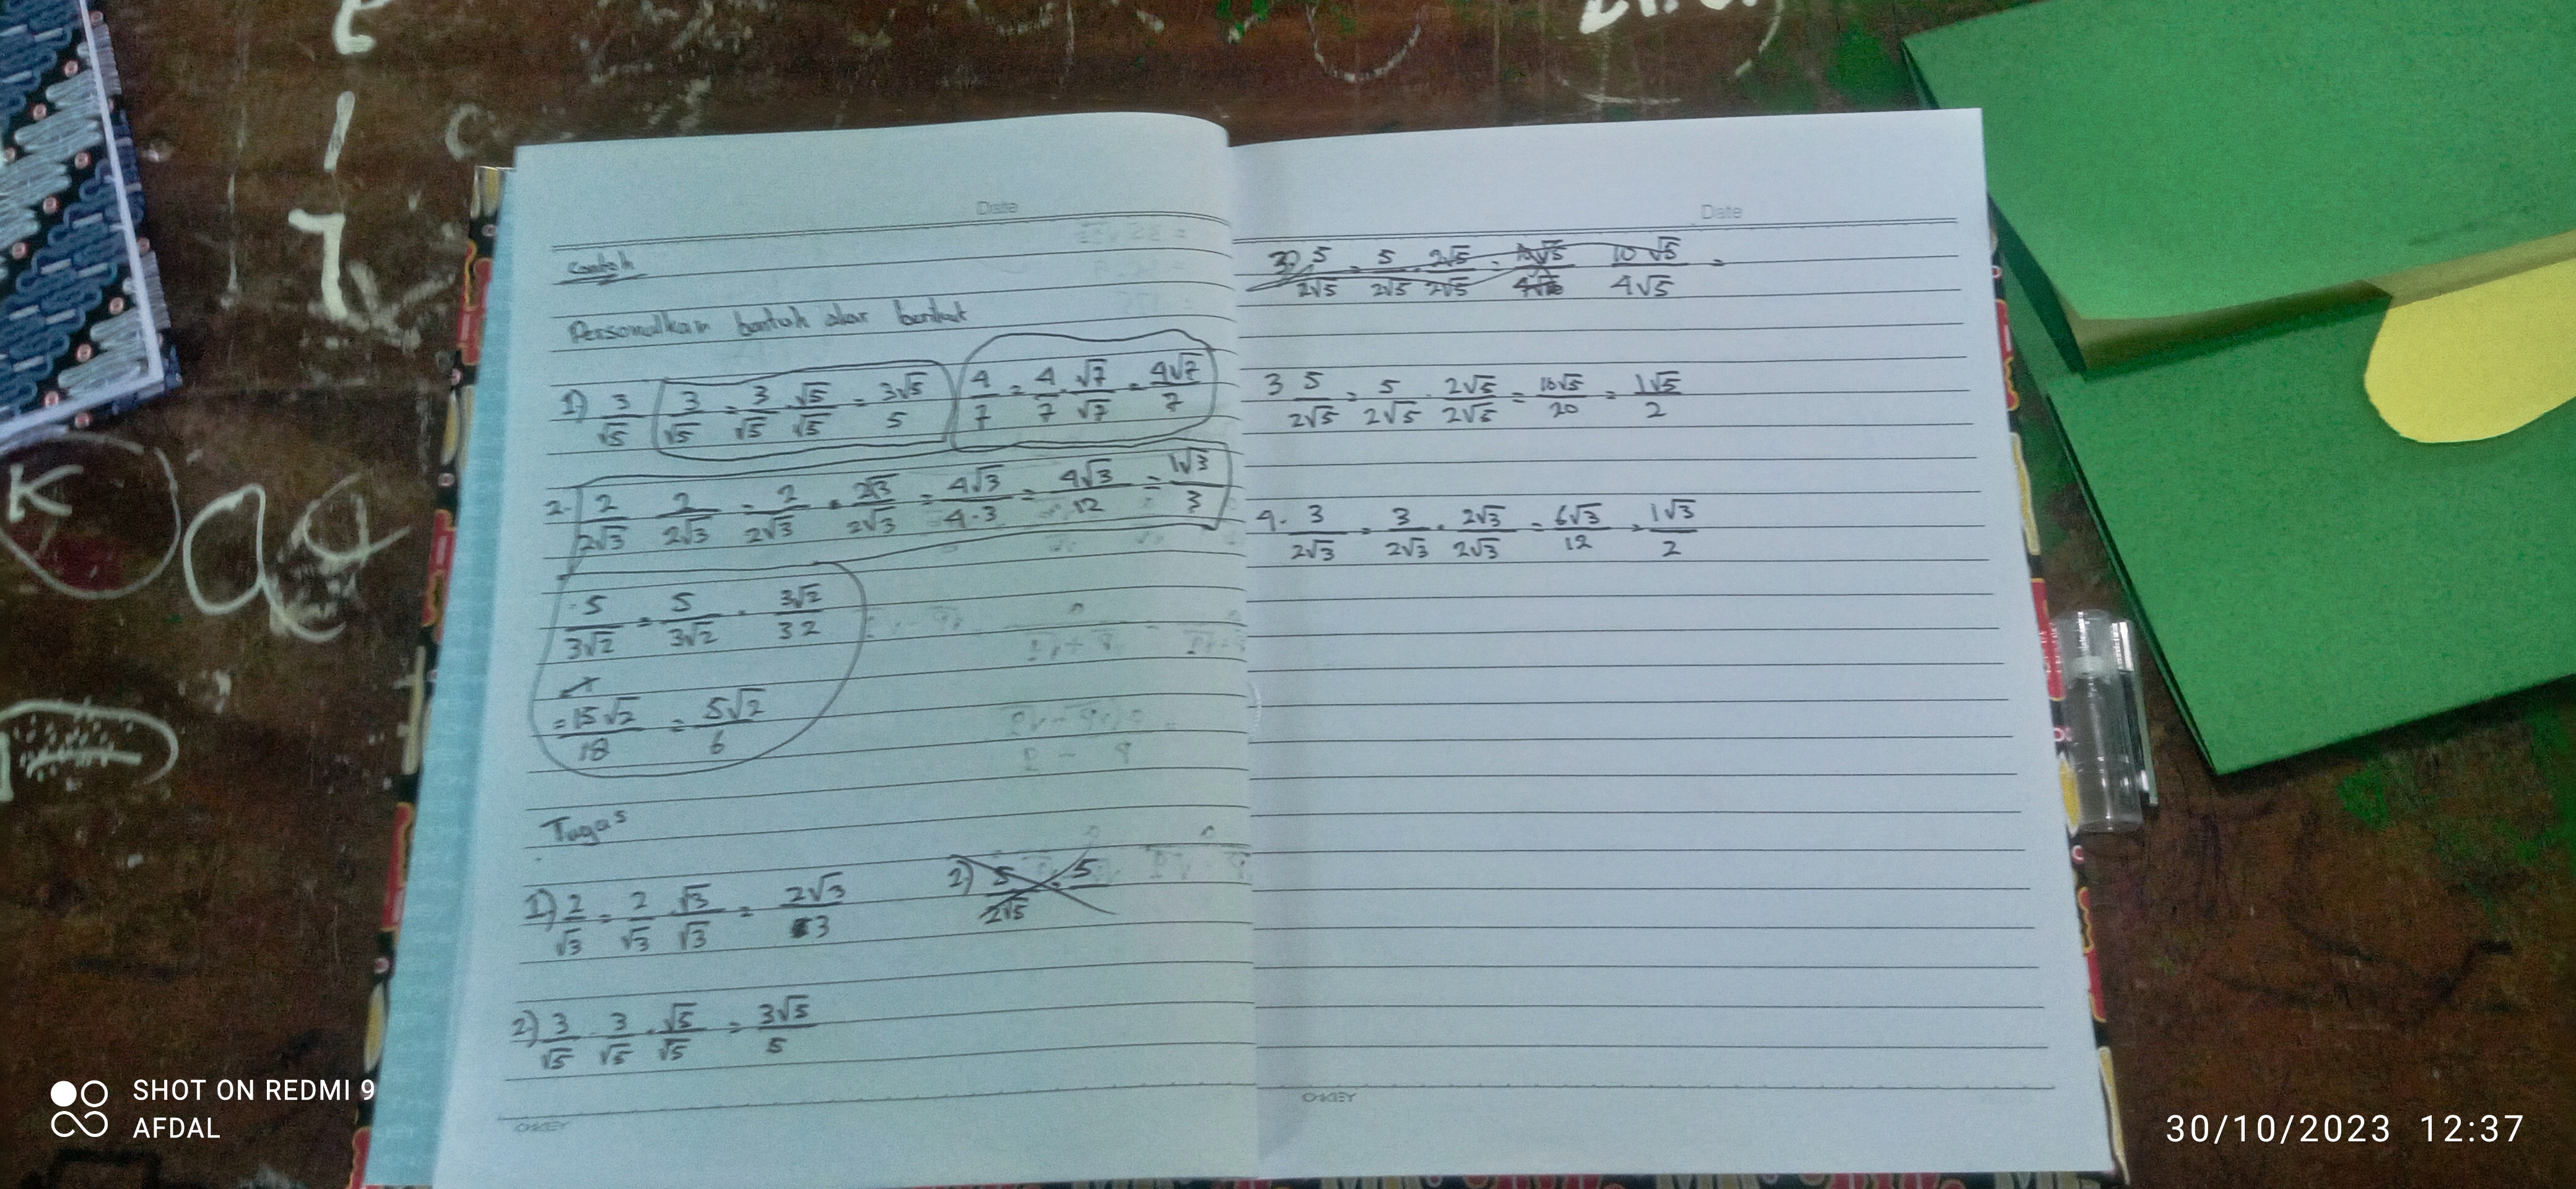 Date
Contoh
Persomalkan bentuk akar berikut
1) 3/√5 3/√5 = 3/√5 . √5/√5 = 3√5/5 4/7 = 4/7 . √7/√7 = 4√7/7
2. 2/2√3 2/2√3 = 2/2√3 . 2√3/2√3 = 4√3/4·3 = 4√3/12 = 1√3/3
5/3√2 = 5/3√2 . 3√2/32
= 15√2/18 = 5√2/6
Tugas
1) 2/√3 = 2/√3 . √3/√3 = 2√3/3 2) 5/2√5 . 5
2) 3/√5 . 3/√5 . √5/√5 = 3√5/5
OKEY
Date
3) 5/2√5 = 5/2√5 . 2√5/2√5 = 10√5 10√5/4√5 =
3 5/2√5 = 5/2√5 . 2√5/2√5 = 10√5/20 = 1√5/2
4. 3/2√3 = 3/2√3 . 2√3/2√3 = 6√3/12 = 1√3/2
OKEY
SHOT ON REDMI 9
AFDAL
30/10/2023 12:37